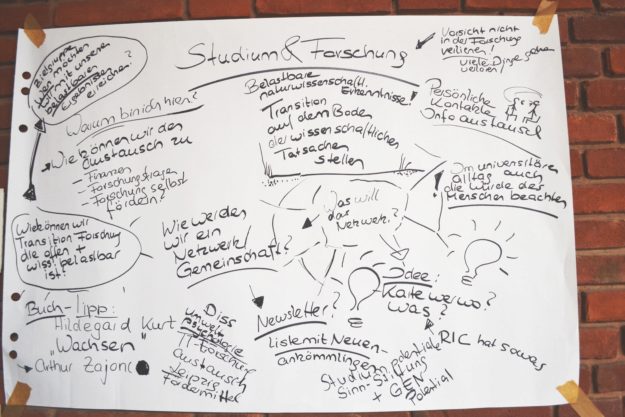 Studium & Forschung
Zielgruppe
wen möchten
wir mit unseren
belastbaren
ergebnissen
erreichen.
?
Vorsicht nicht
in der Forschung
verlieren!
viele Dinge
Belastbare
naturwissenschaftl.
Erkenntnisse!
Transition
auf dem Boden
der wissenschaftlichen
Tatsachen
stellen
Persönliche
Kontakte
Infoaustausch
Warum bin ich hier?
Wie können wir den
austausch zu
- Finanzen
- Forschungsfragen
- Forschung selbst
fördern?
Im universitären
alltag auch
die würde des
Menschen beachten
Was will
das
Netzwerk?
Wie werden
wir ein
Netzwerk/
Gemeinschaft?
Wie können wir
Transition Forschung
die offen +
wiss. belastbar
ist?
Idee:
Karte wer wo?
was?
Newsletter?
Liste mit Neuen-
ankömmlingen
RIC hat sowas
Studium potentiale
Sinn-Stiftung
+ GEN
Potential
Buch-Tipp:
Hildegard Kurt
"Wachsen"
Arthur Zajonc
Diss
umwelt
psychologie
TT-Forschung
austausch
Leipzig
Fördermittel